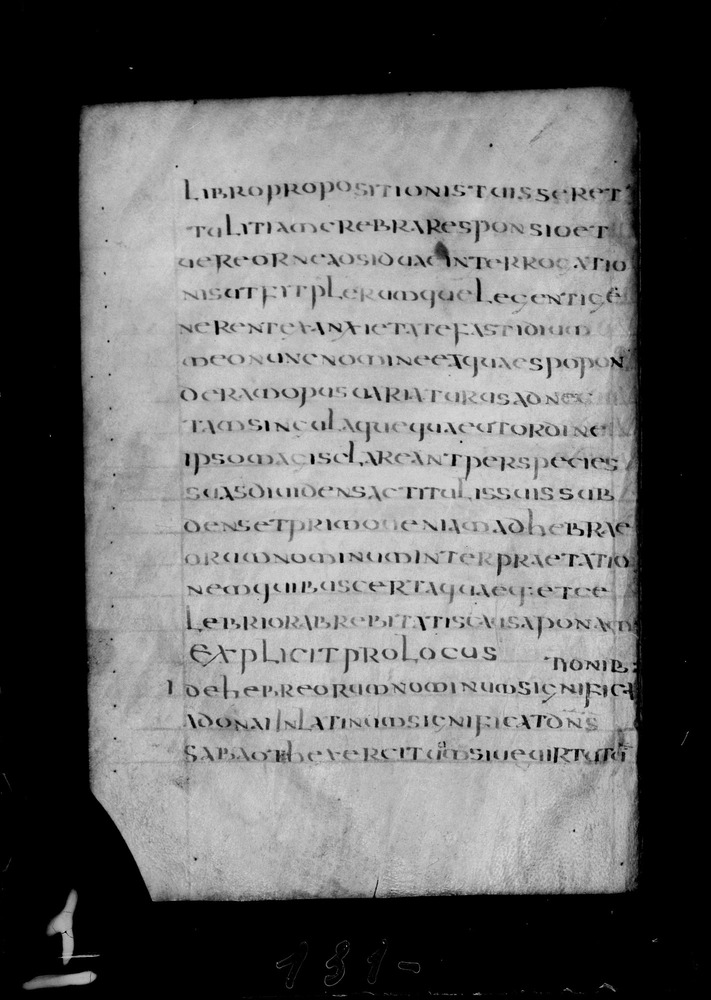 LIBROPROPOSITIONISTUISSERET
TULITIAMCREBRARESPONSIOET
UEREORNEADSIDUACINTERROGATIO
NISUTFITPLERUMQUELEGENTIGE
NERENTEXANXIETATEFASTIDIUM
MEONUNCNOMINEEAQUAESPOPON
DERAMOPUSUARIATURUSADNEC
TAMSINGULAQUEQUAEUTORDINE
IPSOMAGISCLAREANTPERSPECIES
SUASDIUIDENSACTITULISSUISSUB
DENSETPRIMOUENIAMADHEBRAE
ORUMNOMINUMINTERPRAETATIO
NEMQUIBUSCERTAQUAEQ:ETCE
LEBRIORABREBITATISCAUSAPONAM
EXPLICITPROLOCUS
TIONIB:
I DEHEBREORUMNOMINUMSIGNIFICA
ADONAIINLATINUMSIGNIFICATDNS
SABAOTHEXERCITUUMSIUEUIRTUTU
1
131-